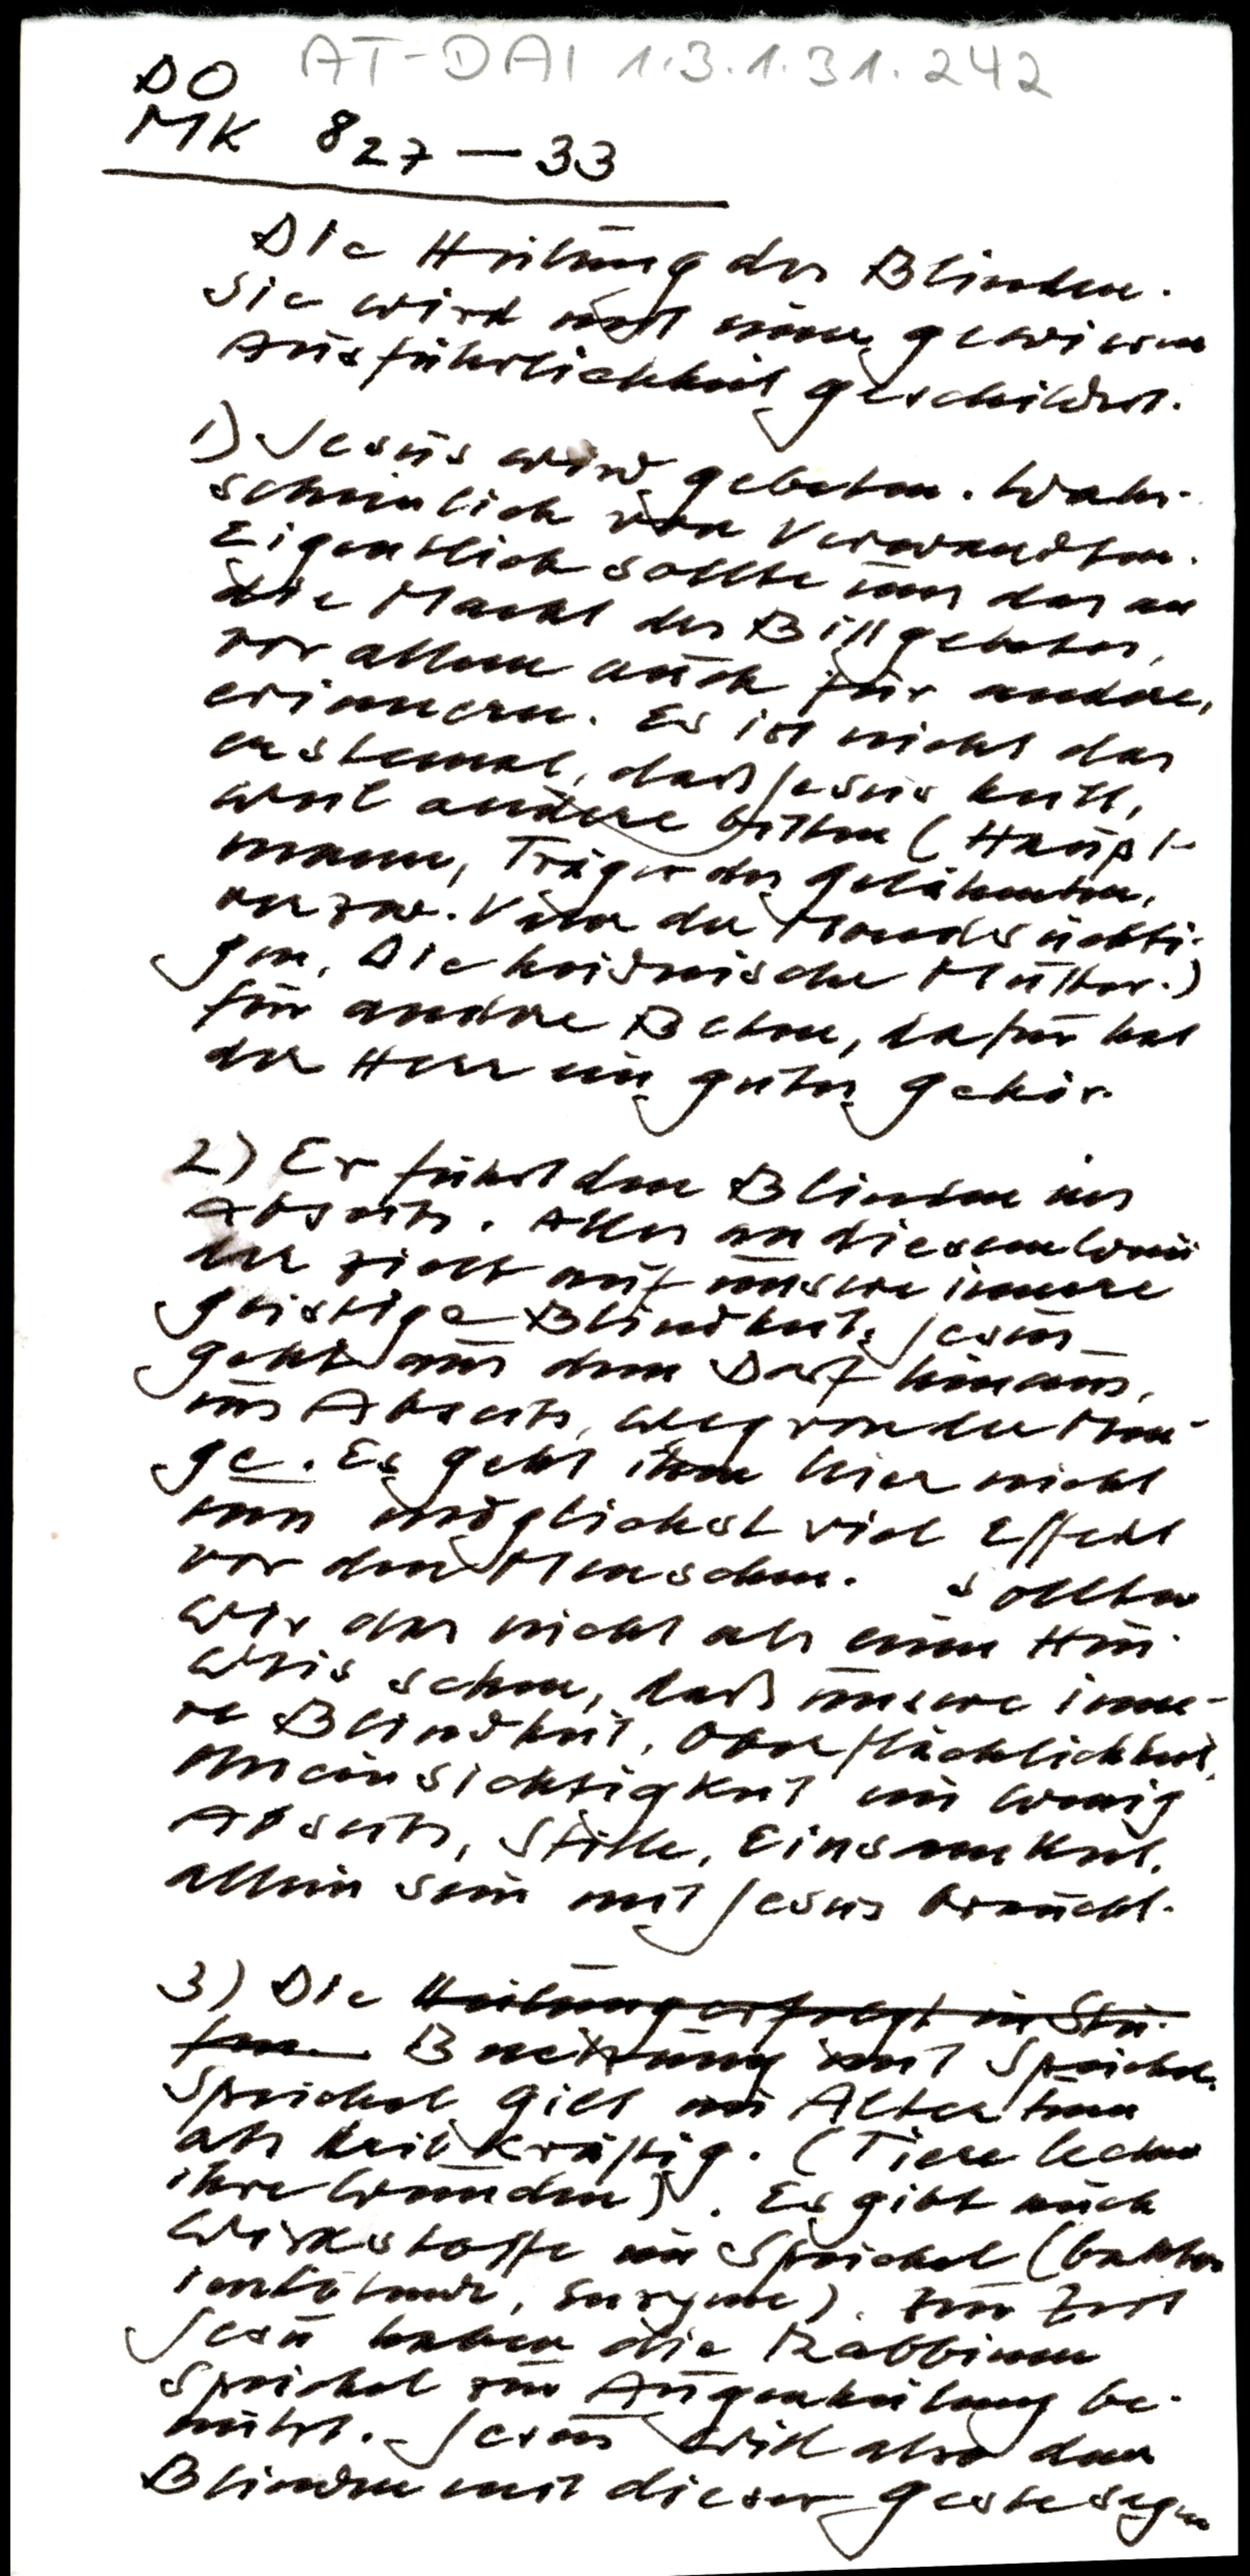 AT-DAI 1.3.1.31.242
DO
MK 827-33
Die Heilung des Blinden.
Sie wird mit einer gewissen
Ausführlichkeit geschildert.
1) Jesus wird gebeten. Wahr-
scheinlich von Verwandten.
Eigentlich sollte uns das an
die Macht des Bittgebetes,
vor allem auch für andere,
erinnern. Es ist nicht das
erstemal, daß Jesus heilt,
weil andere bitten (Haupt-
mann, Träger des Gelähmten,
Vater des Mondsüchti-
gen, Die heidnische Mutter.)
für andere Beten, dafür hat
der Herr ein gutes Gehör.
2) Er führt den Blinden ins
Abseits. Alles an diesem Wun
der zielt auf unsere innere
geistige Blindheit. Jesus
geht aus dem Dorf hinaus,
ins Abseits, weg von der Men-
ge. Es geht ihm hier nicht
um möglichst viel Effekt
vor den Menschen. Sollten
wir das nicht als einen Hin-
weis sehen, daß unsere inne-
re Blindheit, Oberflächlichkeit,
Uneinsichtigkeit ein wenig
Abseits, Stille, Einsamkeit,
allein sein mit Jesus braucht.
3) Die Heilung erfolgt in Stu-
fen. Benetzung mit Speichel.
Speichel gilt im Altertum
als heilkräftig. (Tiere lecken
ihre Wunden). Es gibt auch
Wirkstoffe im Speichel (bakter
ientötende, Enzyme). Zur Zeit
Jesu haben die Rabbinen
Speichel zur Augenheilung be-
nützt. Jesus will also dem
Blinden mit dieser Geste sagen